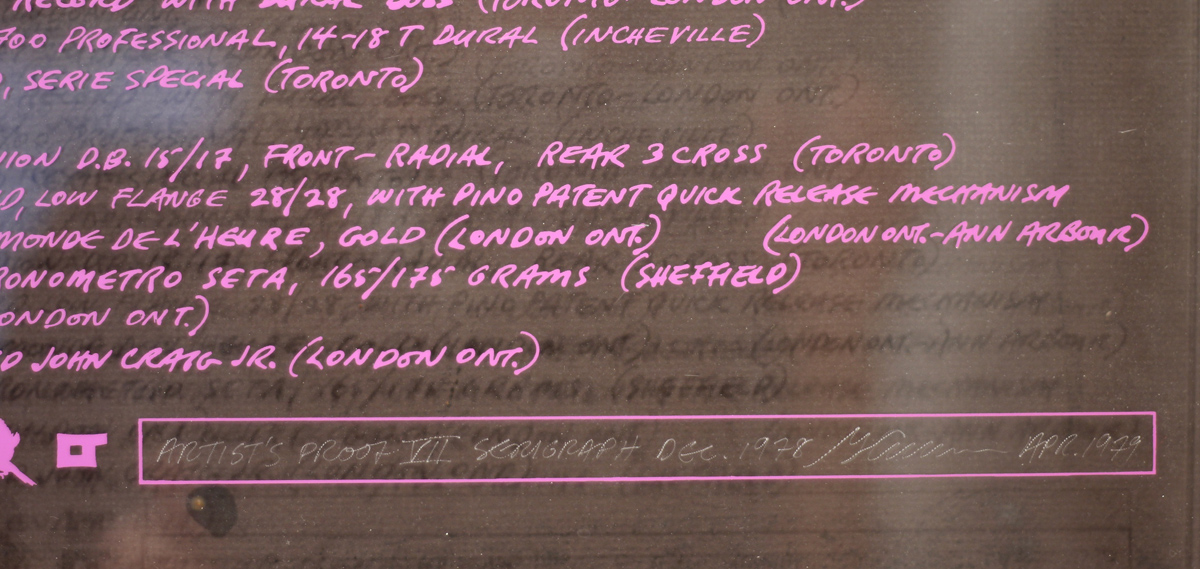 RECORD WITH DURAL (TORONTO-LONDON ONT.)
700 PROFESSIONAL, 14-18 T DURAL (INCHEVILLE)
, SERIE SPECIAL (TORONTO)
ION D.B. 15/17, FRONT-RADIAL, REAR 3 CROSS (TORONTO)
D, LOW FLANGE 28/28, WITH PINO PATENT QUICK RELEASE MECHANISM
MONDE DE L'HEURE, GOLD (LONDON ONT.) (LONDON ONT.-ANN ARBOUR)
RONOMETRO SETA, 165/175 GRAMS (SHEFFIELD)
ONDON ONT.)
D JOHN CRAIG JR. (LONDON ONT.)
ARTIST'S PROOF VII SERIGRAPH DEC. 1978 APR. 1979